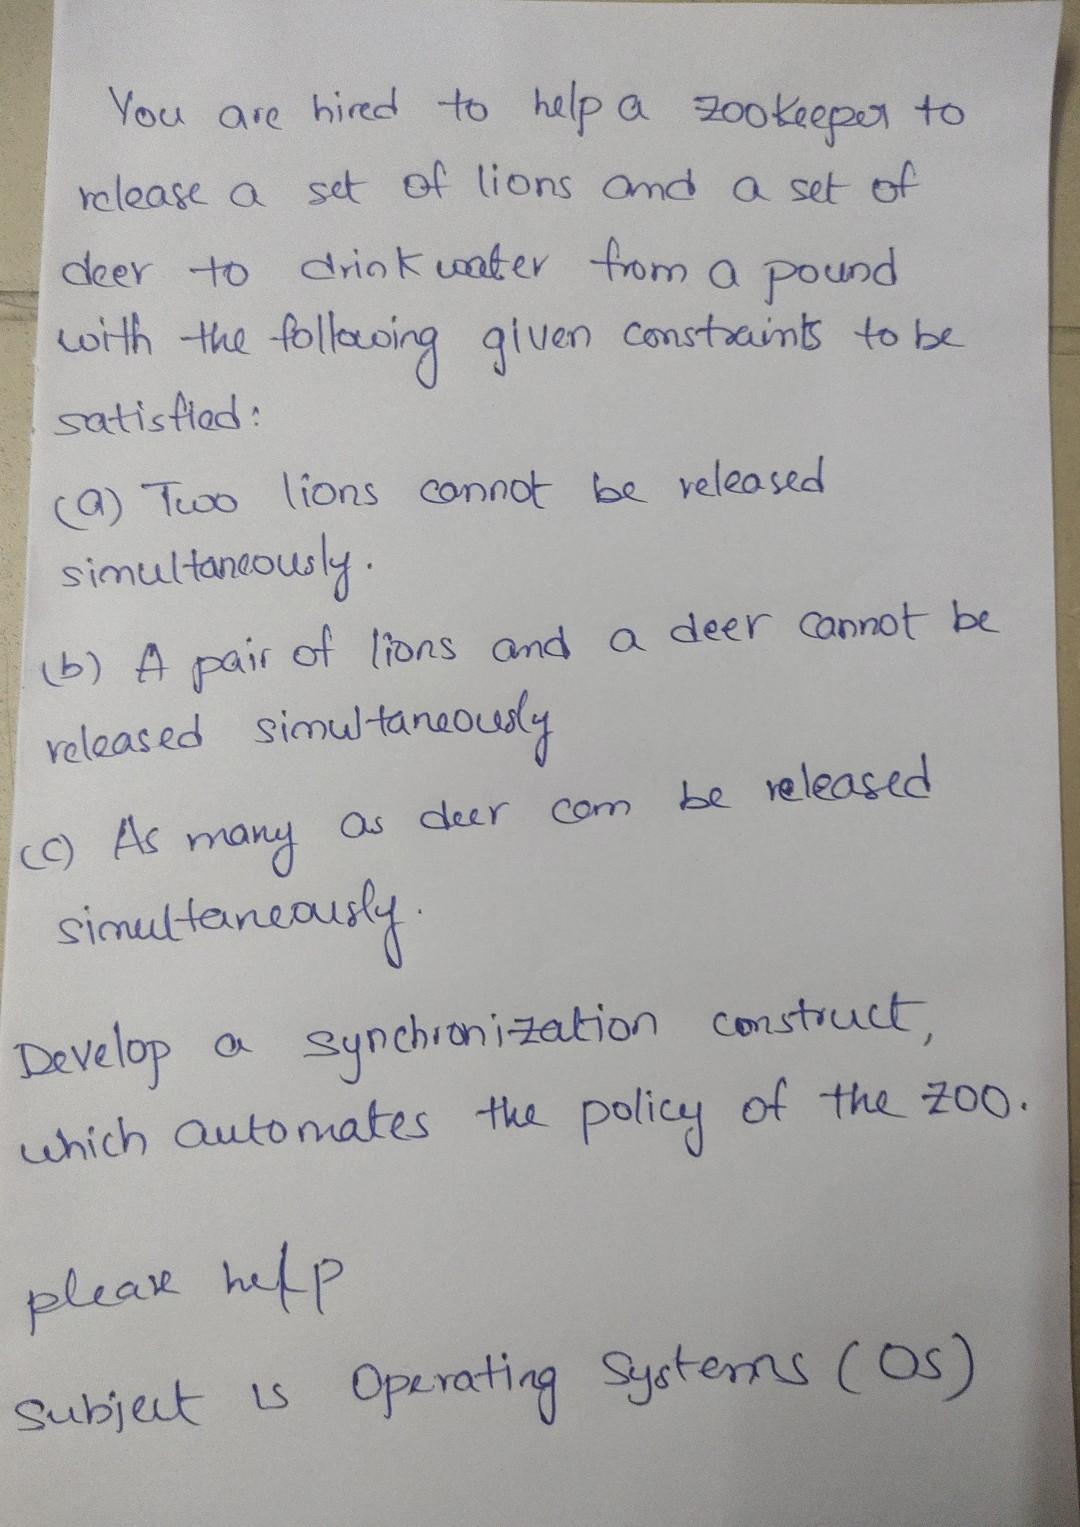 You are hired to help a zookeeper to
release a set of lions and a set of
deer to drink water from a pound
with the following given constraints to be
satisfied:
(a) Two lions cannot be released
simultaneously.
(b) A pair of lions and a deer cannot be
released simultaneously
(c) As many as deer can be released
simultaneously.
Develop a synchronization construct,
which automates the policy of the zoo.
please help
subject is Operating Systems (OS)